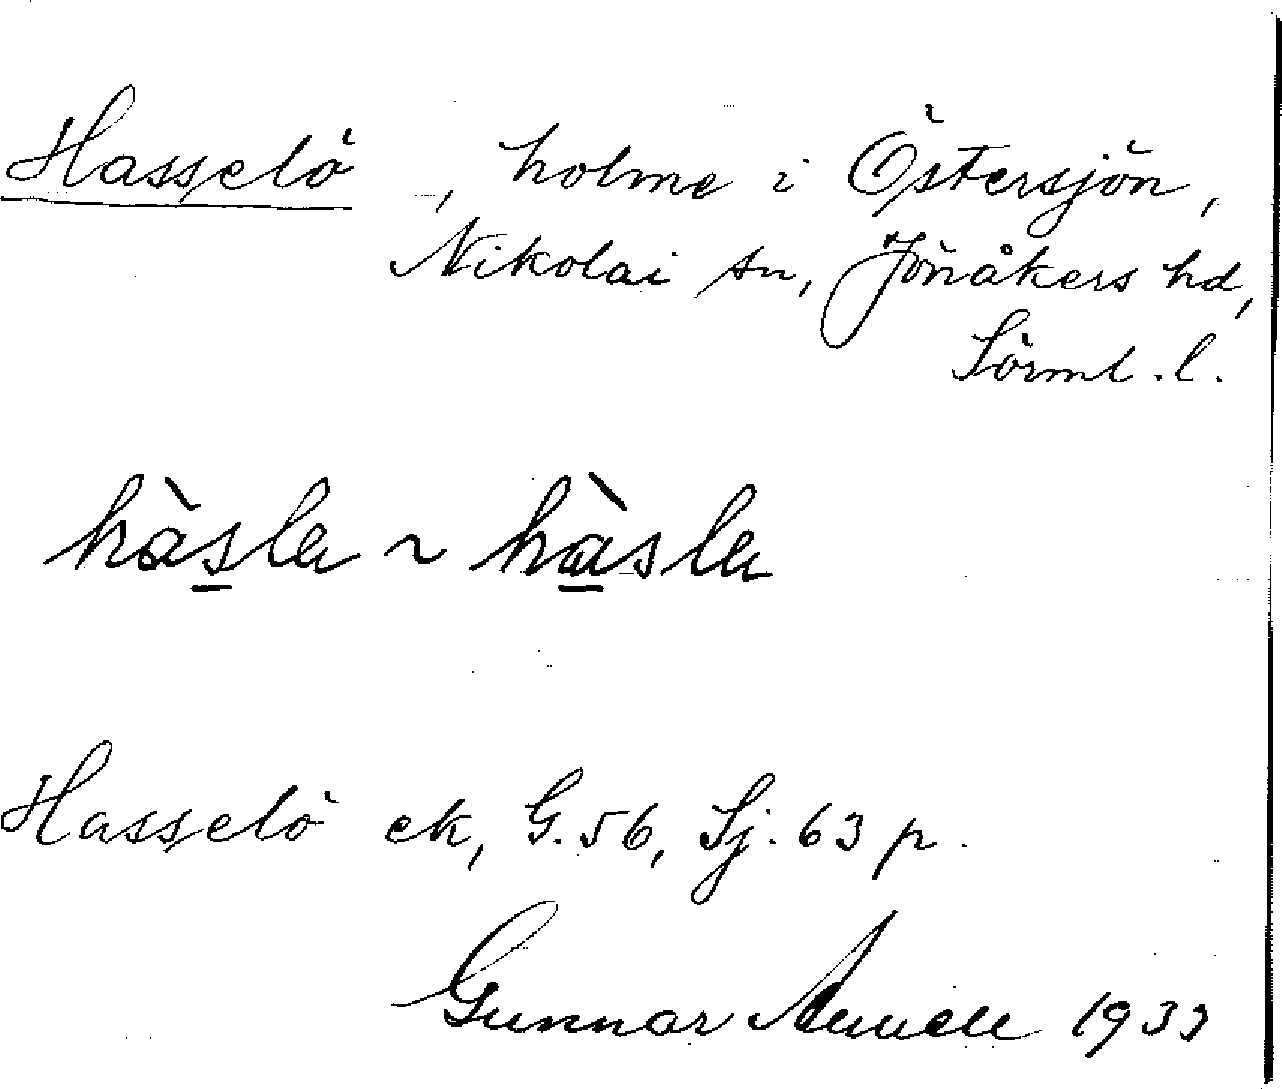 Hasselö, holme i Östersjön,
Nikolai sn, Jönåkers hd,
Sörml. l.
hàsla ~ hàsla
Hasselö ek, G. 56, Sj. 63 p.
Gunnar 1933